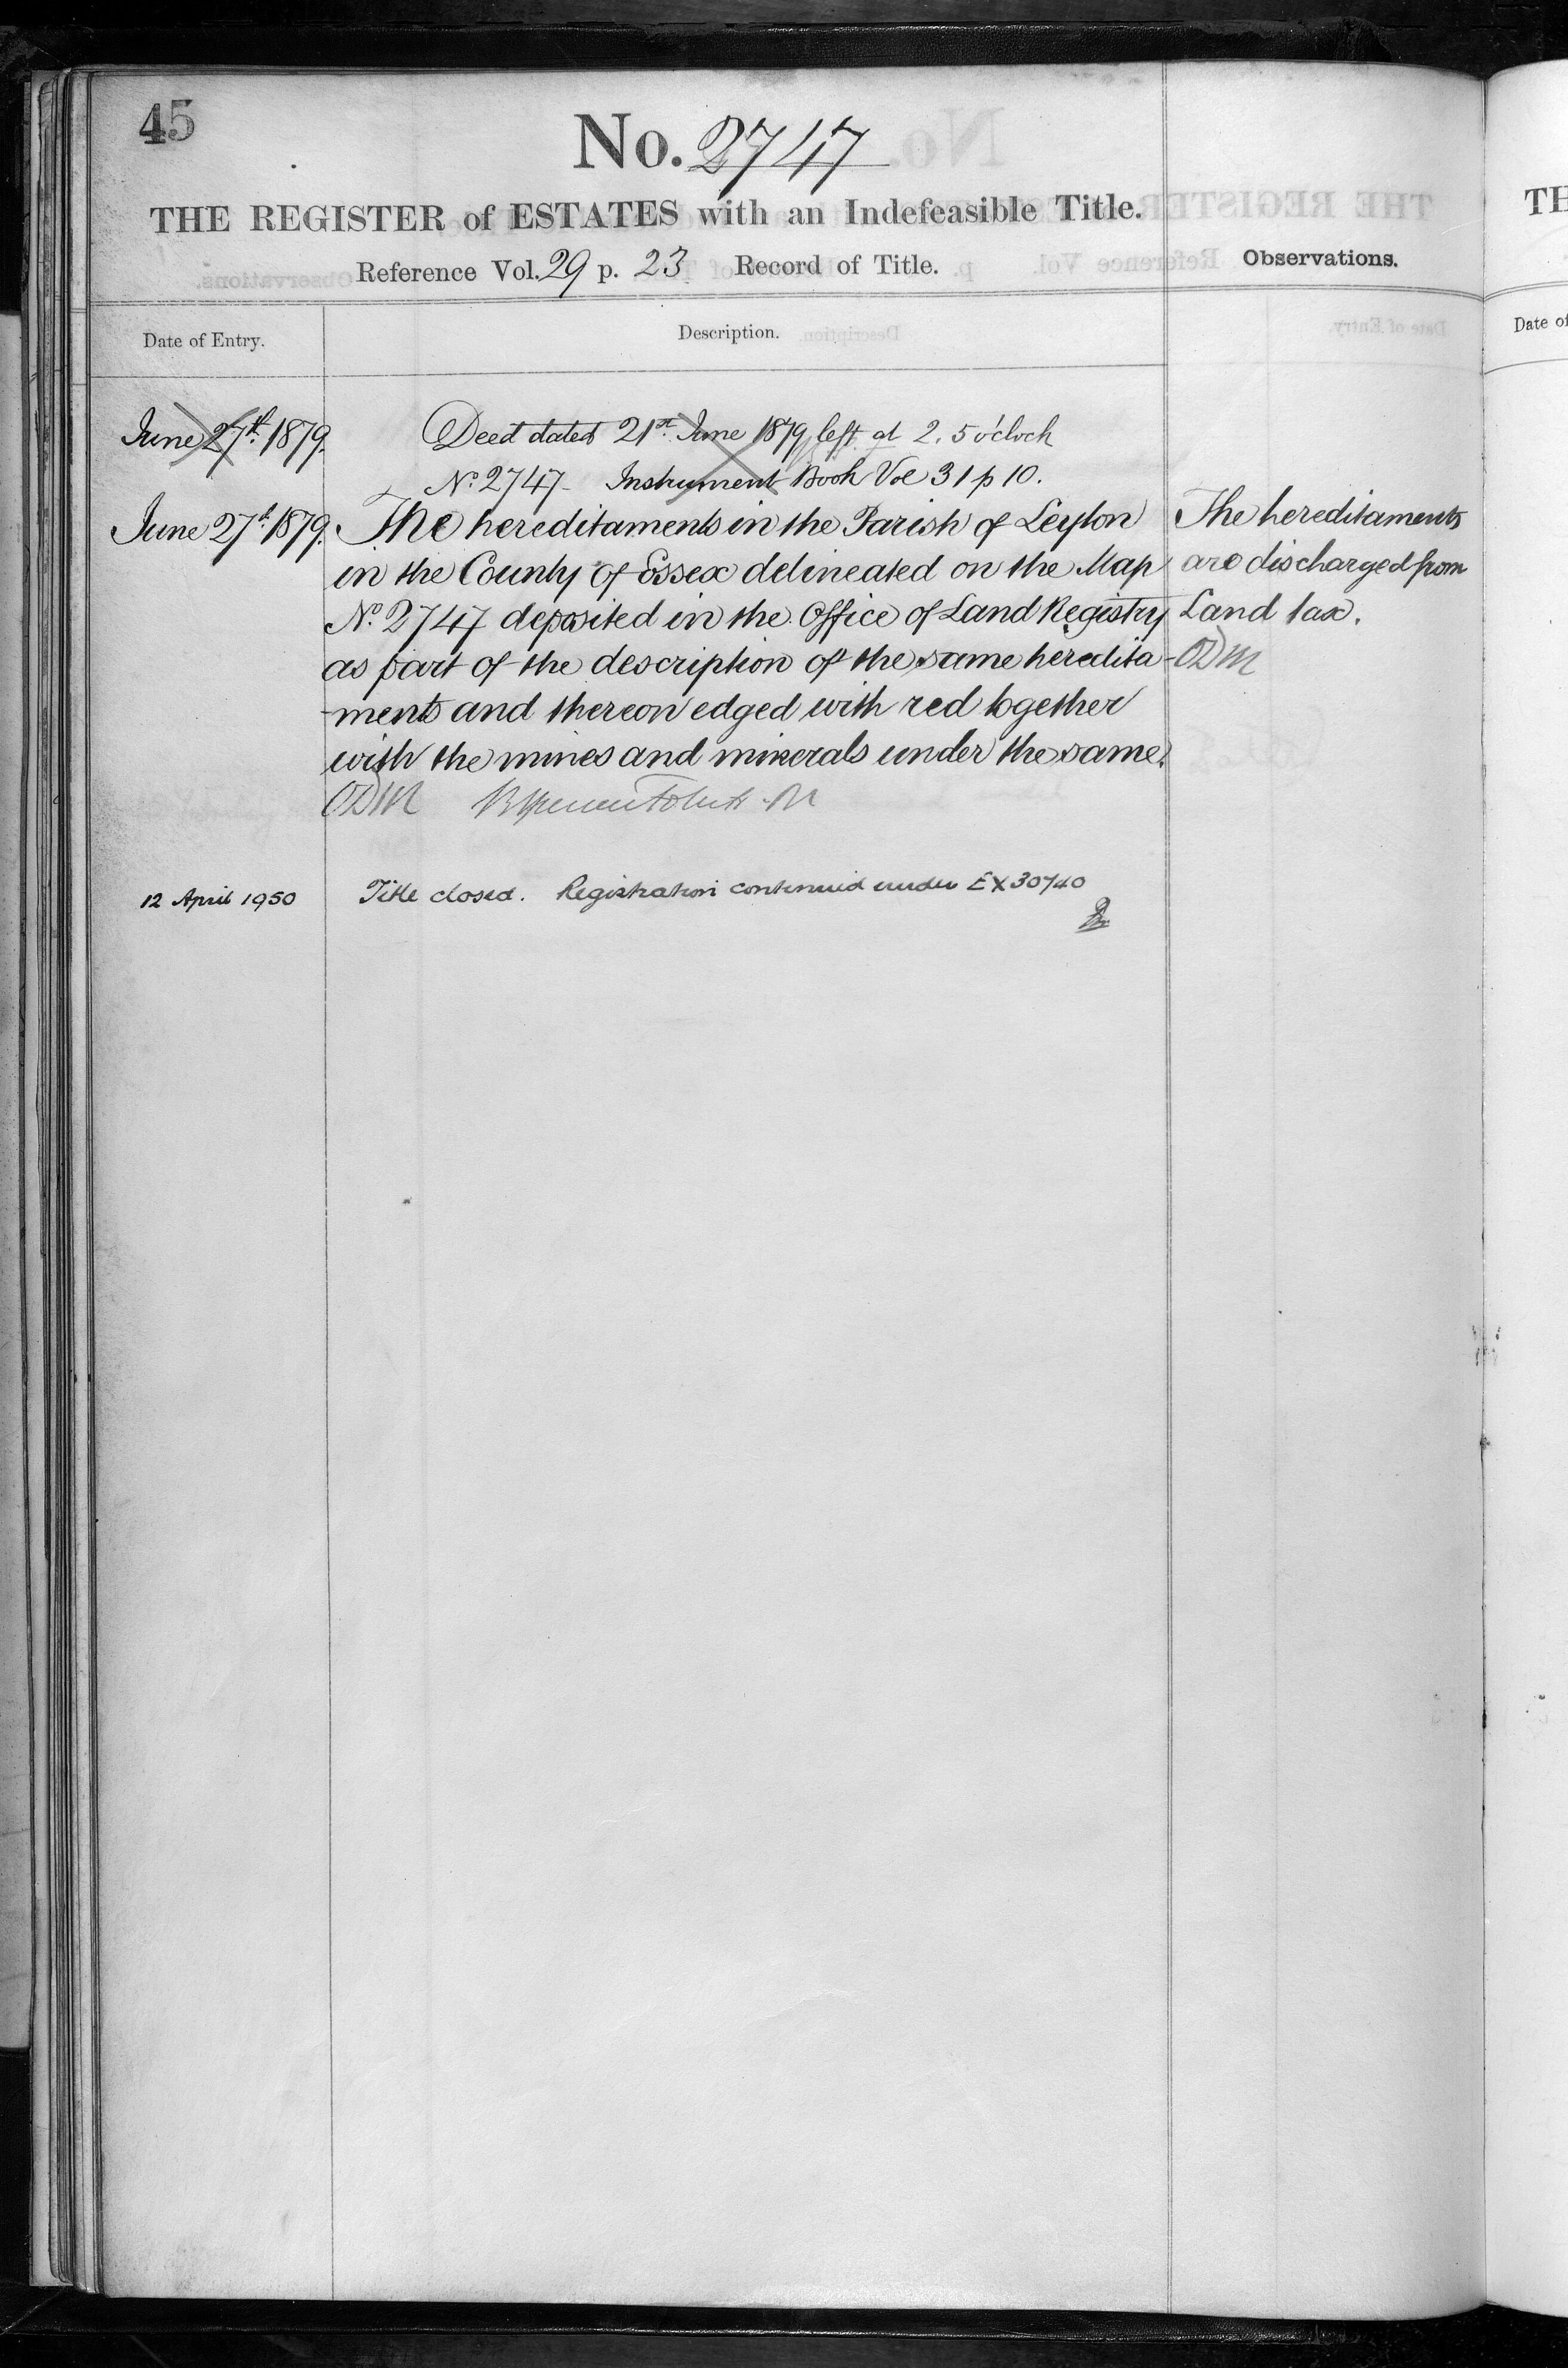 45
No. 2747
THE REGISTER of ESTATES with an Indefeasible Title.
Reference Vol. 29 p. 23 Record of Title.
Observations.
Date of Entry.
Description.
June 27th. 1879.
Deed dated 21st. June 1879 left at 2.5 o'clock
No. 2747 Instrument Book Vol 31 p 10.
June 27th. 1879.
The hereditaments in the Parish of Leyton
in the County of Essex delineated on the Map
No. 2747 deposited in the Office of Land Registry
as part of the description of the same heredita-
-ments and thereon edged with red together
with the mines and minerals under the same.
ODM
The hereditaments
are discharged from
Land tax.
ODM
12 April 1950
Title closed. Registration continued under EX30740
TH
Date of